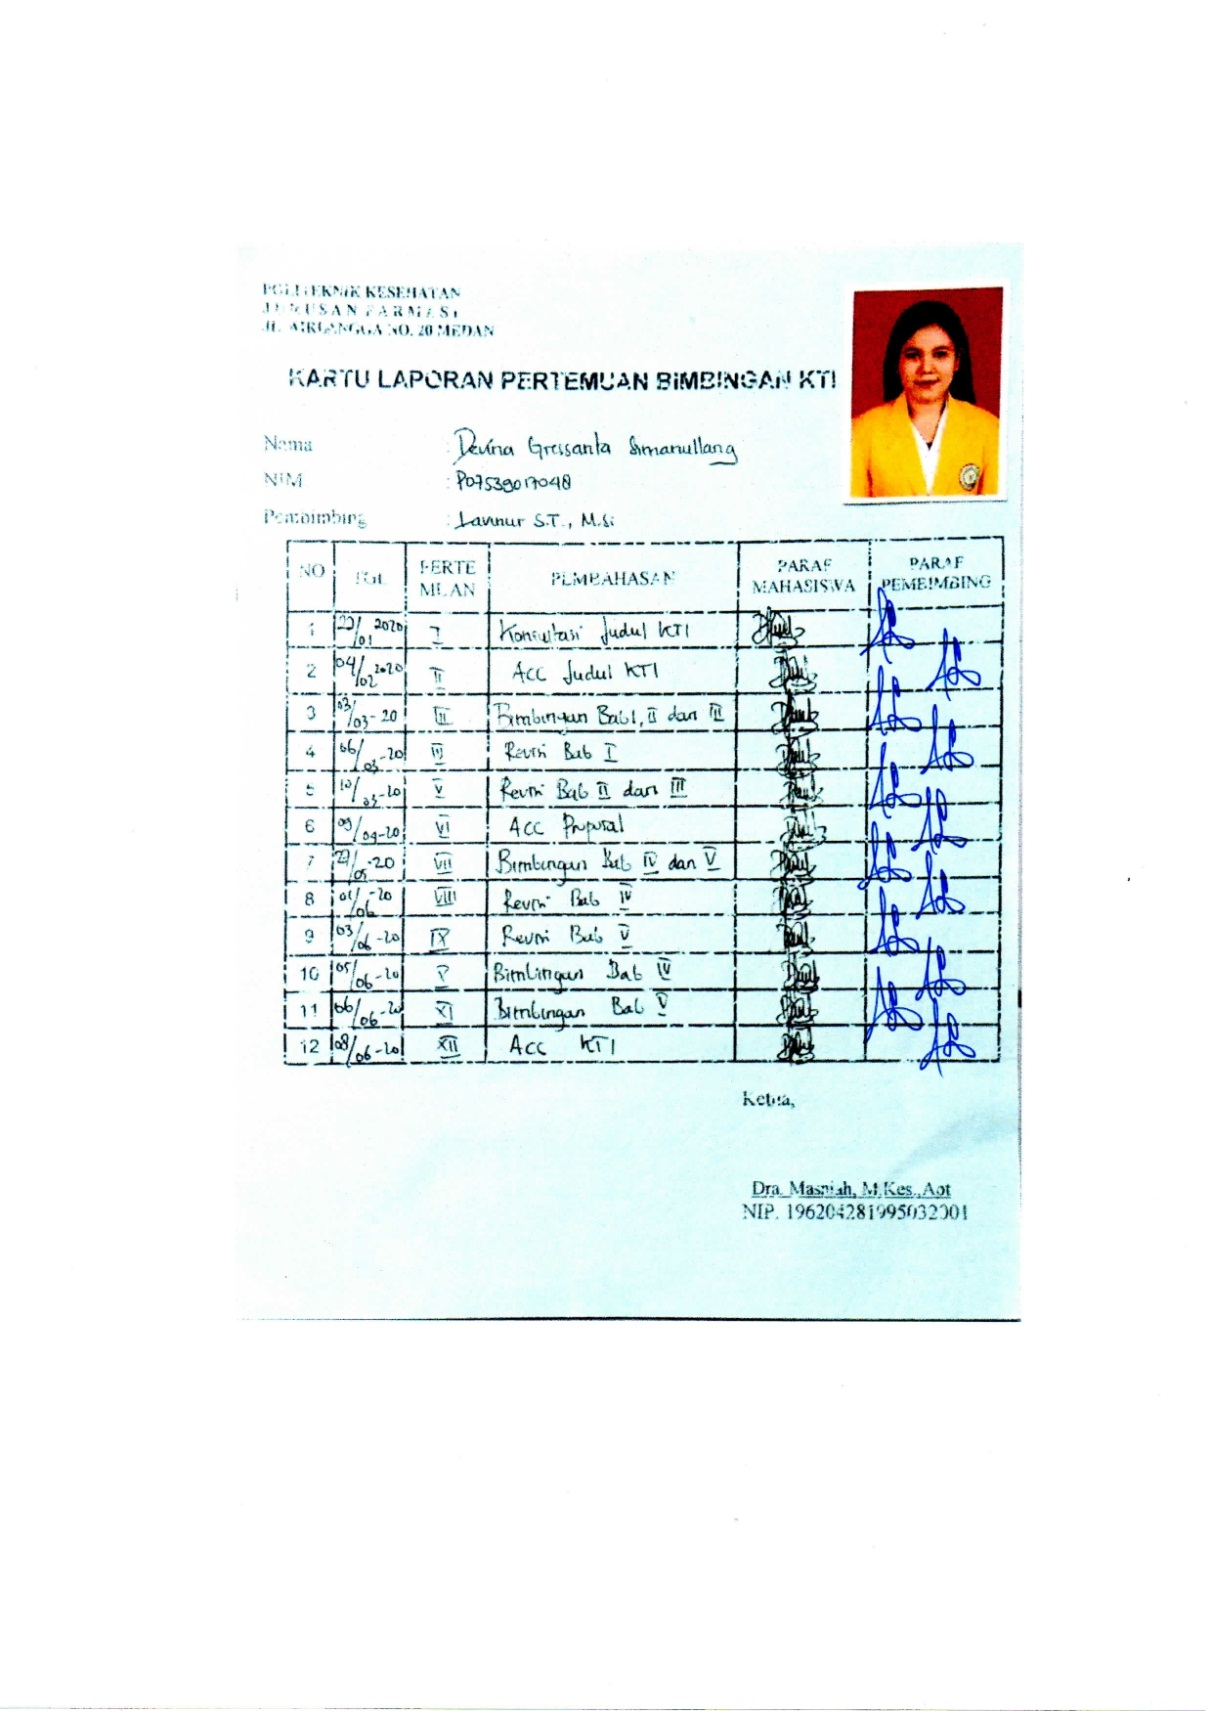 POLITEKNIK KESEHATAN
JURUSAN FARMASI
JL. AIRLANGGA NO. 20 MEDAN
KARTU LAPORAN PERTEMUAN BIMBINGAN KTI
Nama : Devina Gressanta Simanullang
NIM : P07539017048
Pembimbing : Lavinur S.T., M.Si
NO TGL PERTE MUAN PEMBAHASAN PARAF MAHASISWA PARAF PEMBIMBING
1 22/01 2020 I Konsultasi Judul KTI
2 04/02 2020 II ACC Judul KTI
3 03/03-20 III Bimbingan Bab I, II dan III
4 06/03-20 Revisi Bab I
5 10/03-20 V Revisi Bab II dan III
6 09/04-20 VI Acc Proposal
7 /05-20 VII Bimbingan Bab IV dan V
8 01/06-20 VIII Revisi Bab IV
9 03/06-20 IX Revisi Bab V
10 05/06-20 Bimbingan Bab IV
11 06/06-20 XI Bimbingan Bab V
12 08/06-20 XII Acc KTI
Ketua,
Dra. Masniah, M.Kes.,Apt
NIP. 196204281995032001